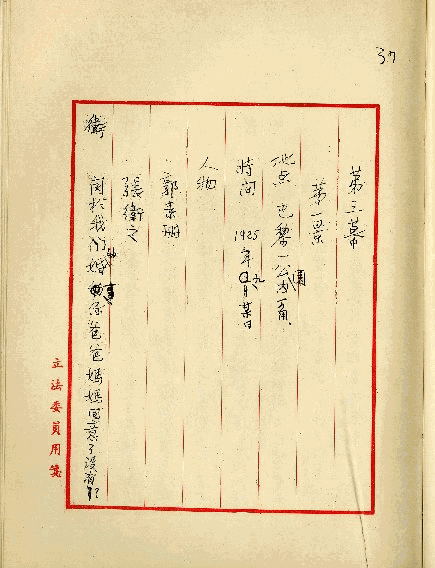 37
第三幕
第一景
地点 巴黎一公園内一角
時间 1925年九月某日
人物
郭素珊
張衛之
衛 関於我們婚事你爸爸媽媽同意了没有?
立法委員用箋